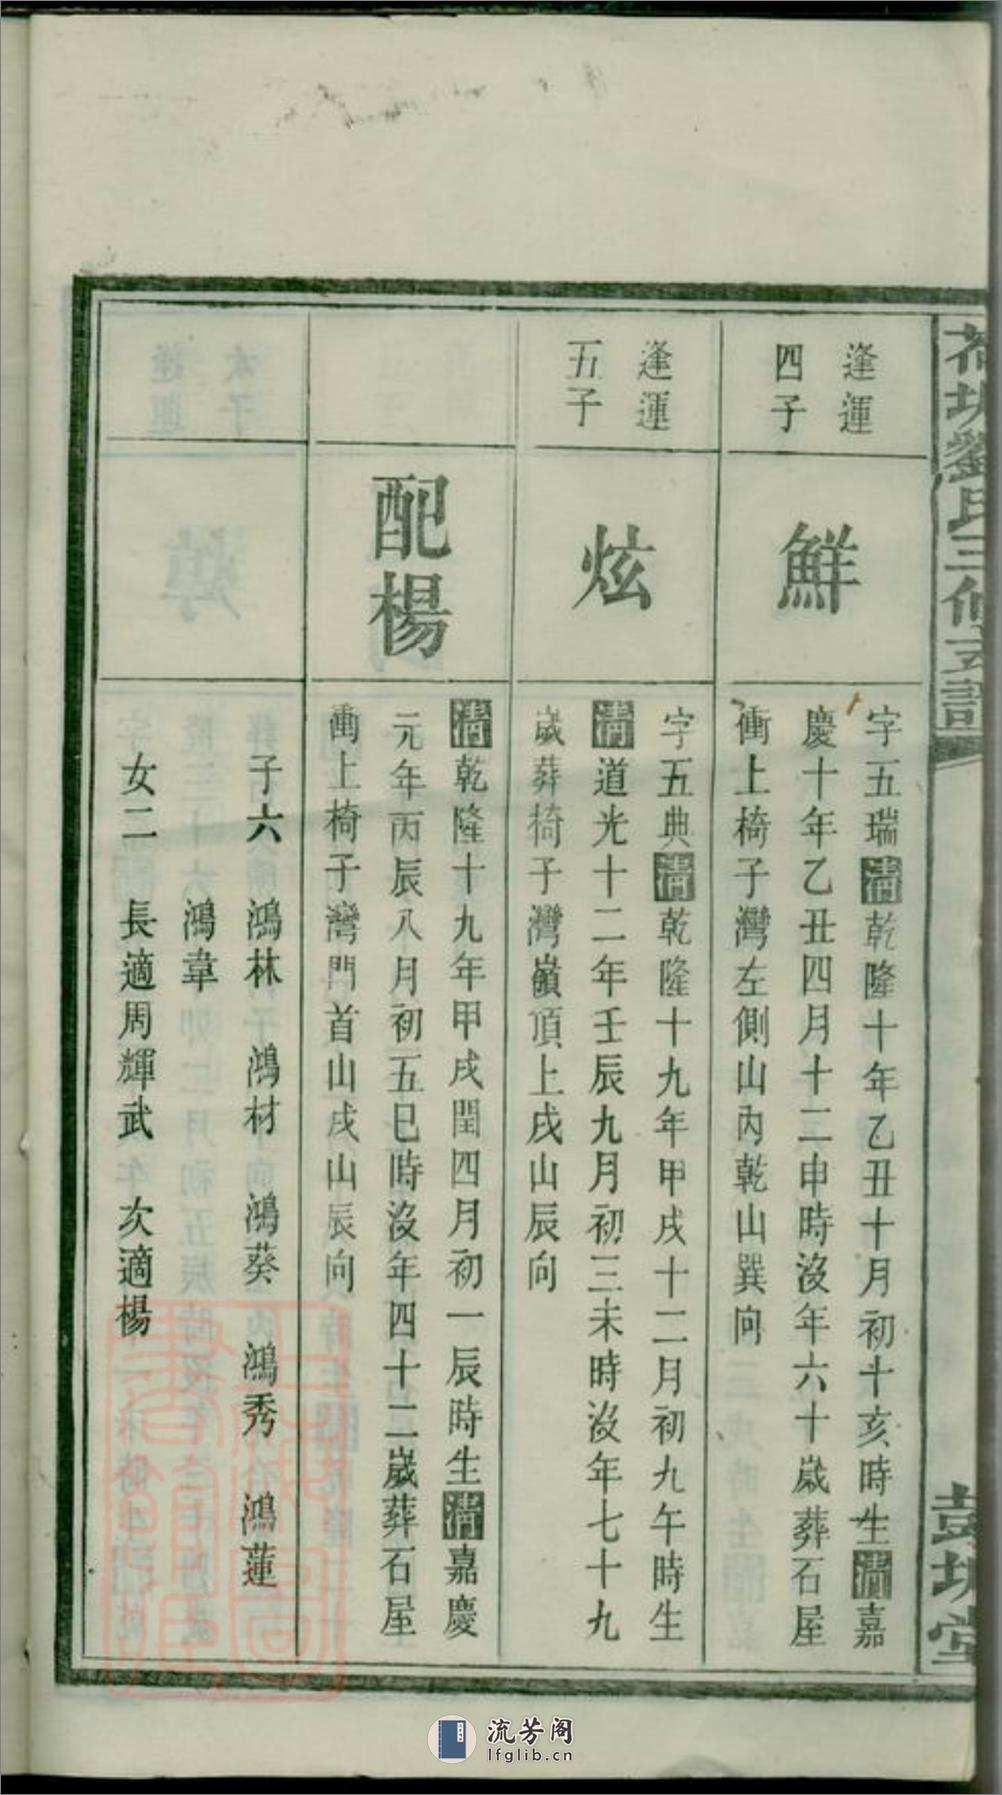 劉氏三修支譜
彭城堂
逢運
四子
鮮
字五瑞清乾隆十年乙丑十月初十亥時生清嘉
慶十年乙丑四月十二申時沒年六十歲葬石屋
衝上椅子灣左側山內乾山巽向
逢運
五子
炫
字五典清乾隆十九年甲戌十二月初九午時生
清道光十二年壬辰九月初三未時沒年七十九
歲葬椅子灣嶺頂上戌山辰向
配楊
清乾隆十九年甲戌閏四月初一辰時生清嘉慶
元年丙辰八月初五巳時沒年四十二歲葬石屋
衝上椅子灣門首山戌山辰向
子六 鴻林 鴻材 鴻葵 鴻秀 鴻蓮
鴻韋
女二 長適周輝武 次適楊
流芳阁
lfglib.cn